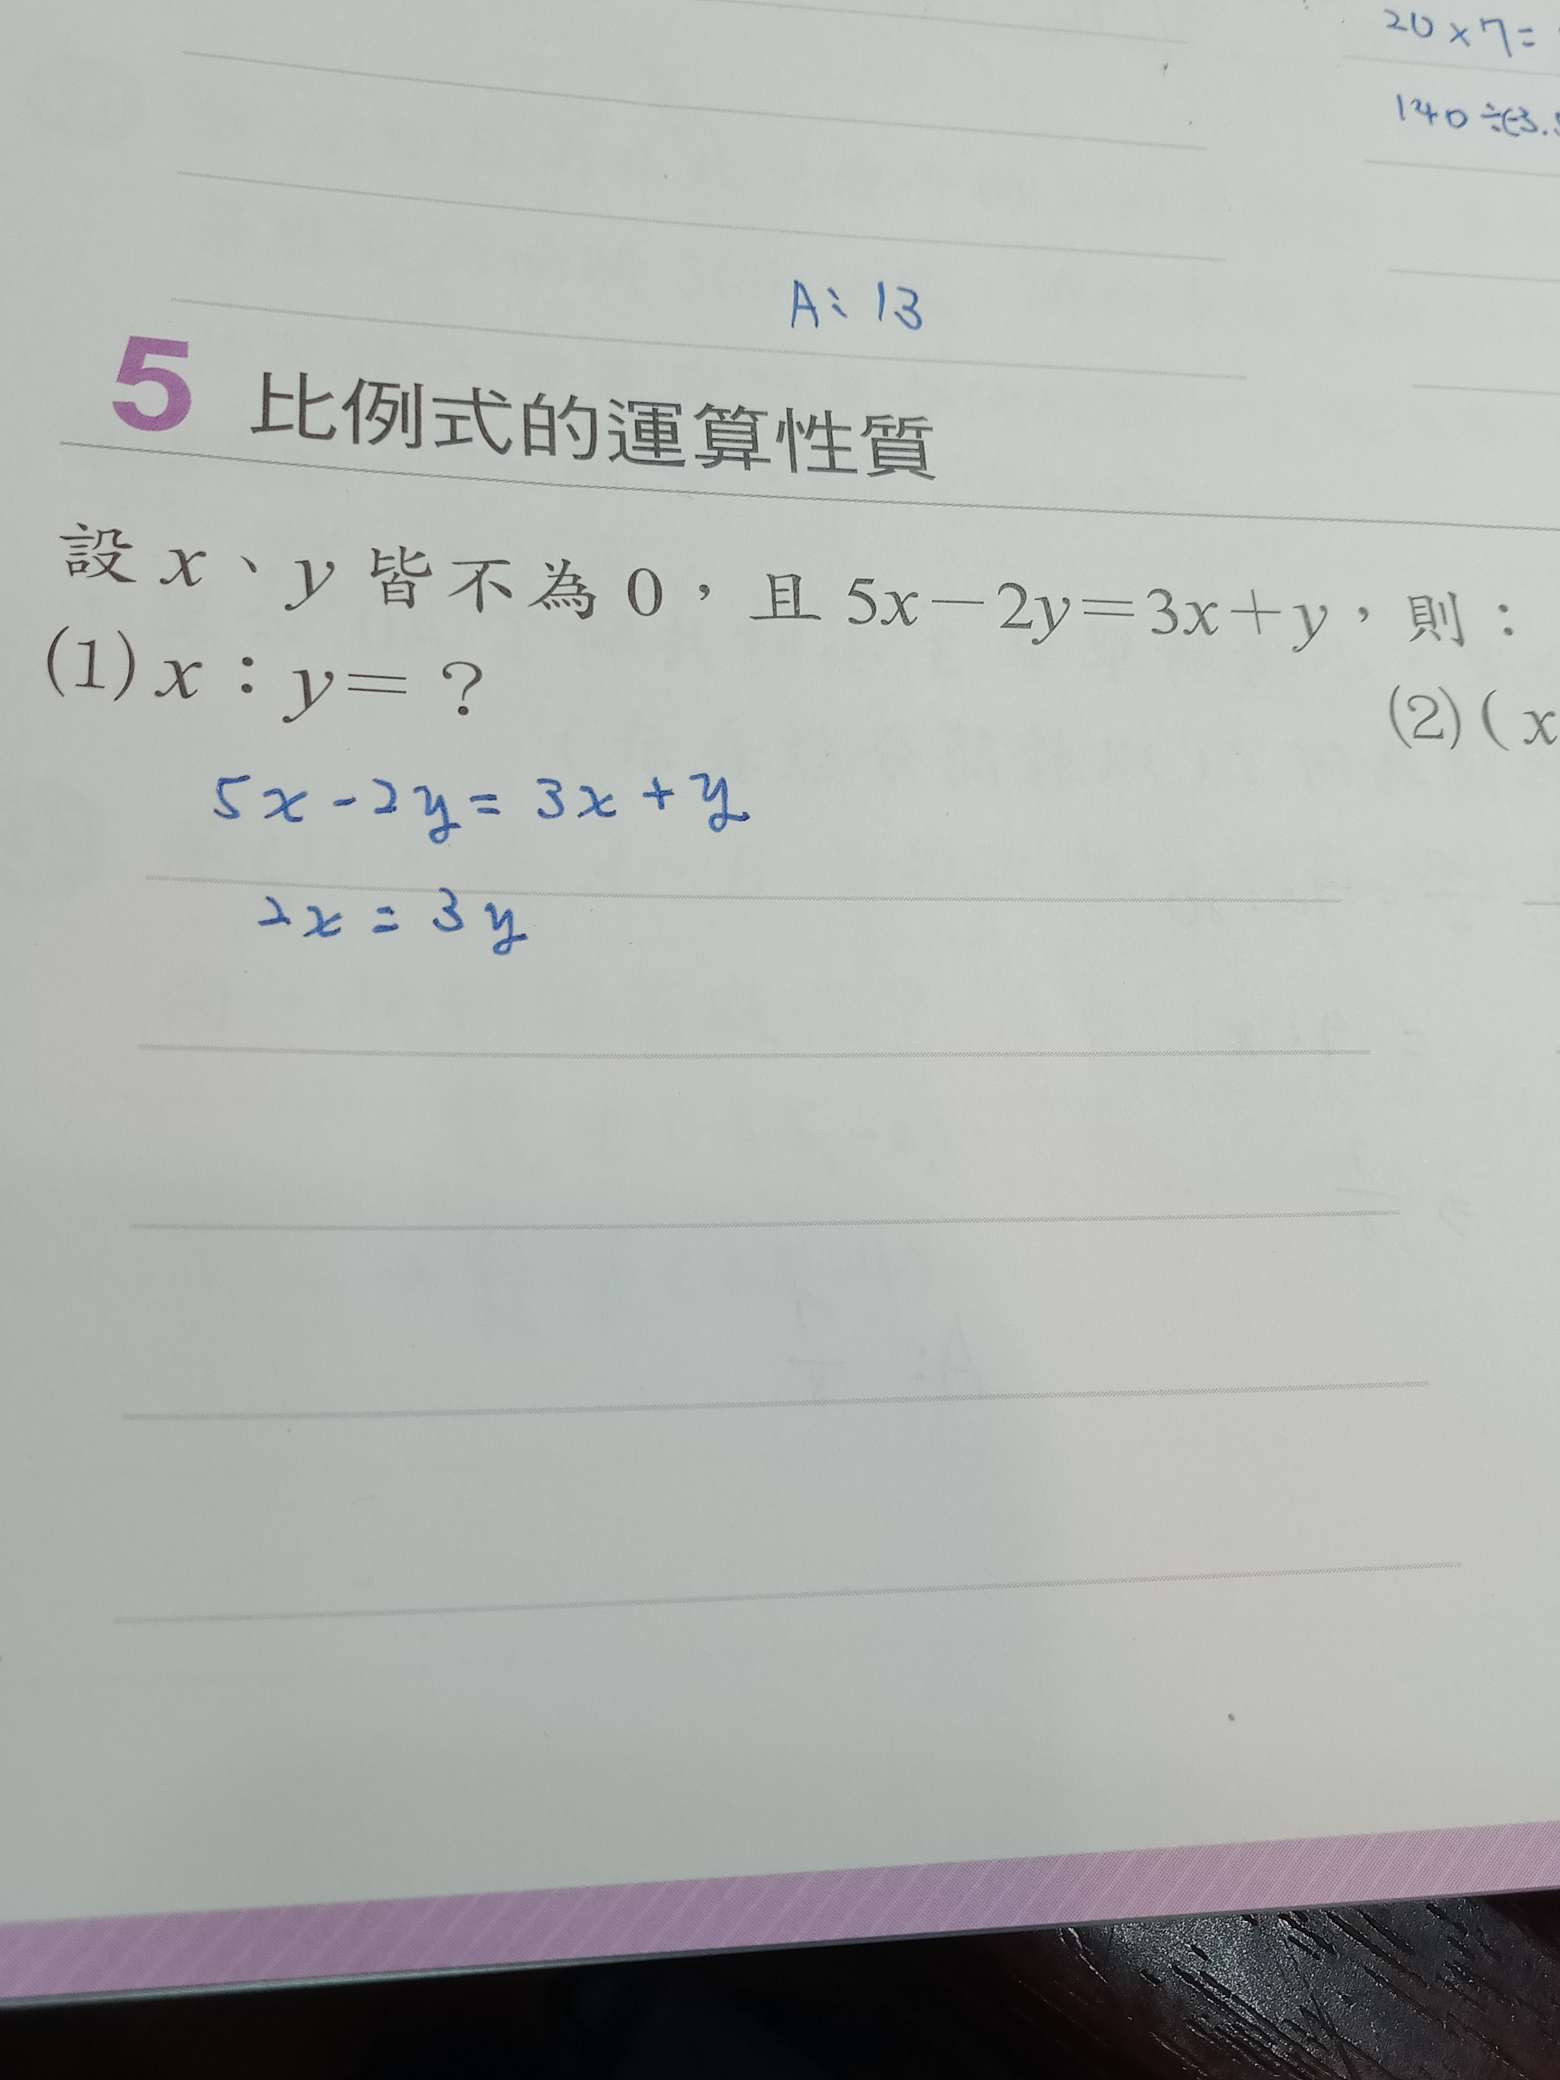 20×7=
140÷(-3.
A:13
5 比例式的運算性質
設 x、y 皆不為 0，且 5x－2y＝3x＋y，則：
(1) x：y＝？
(2) ( x
5x-2y=3x+y
2x=3y